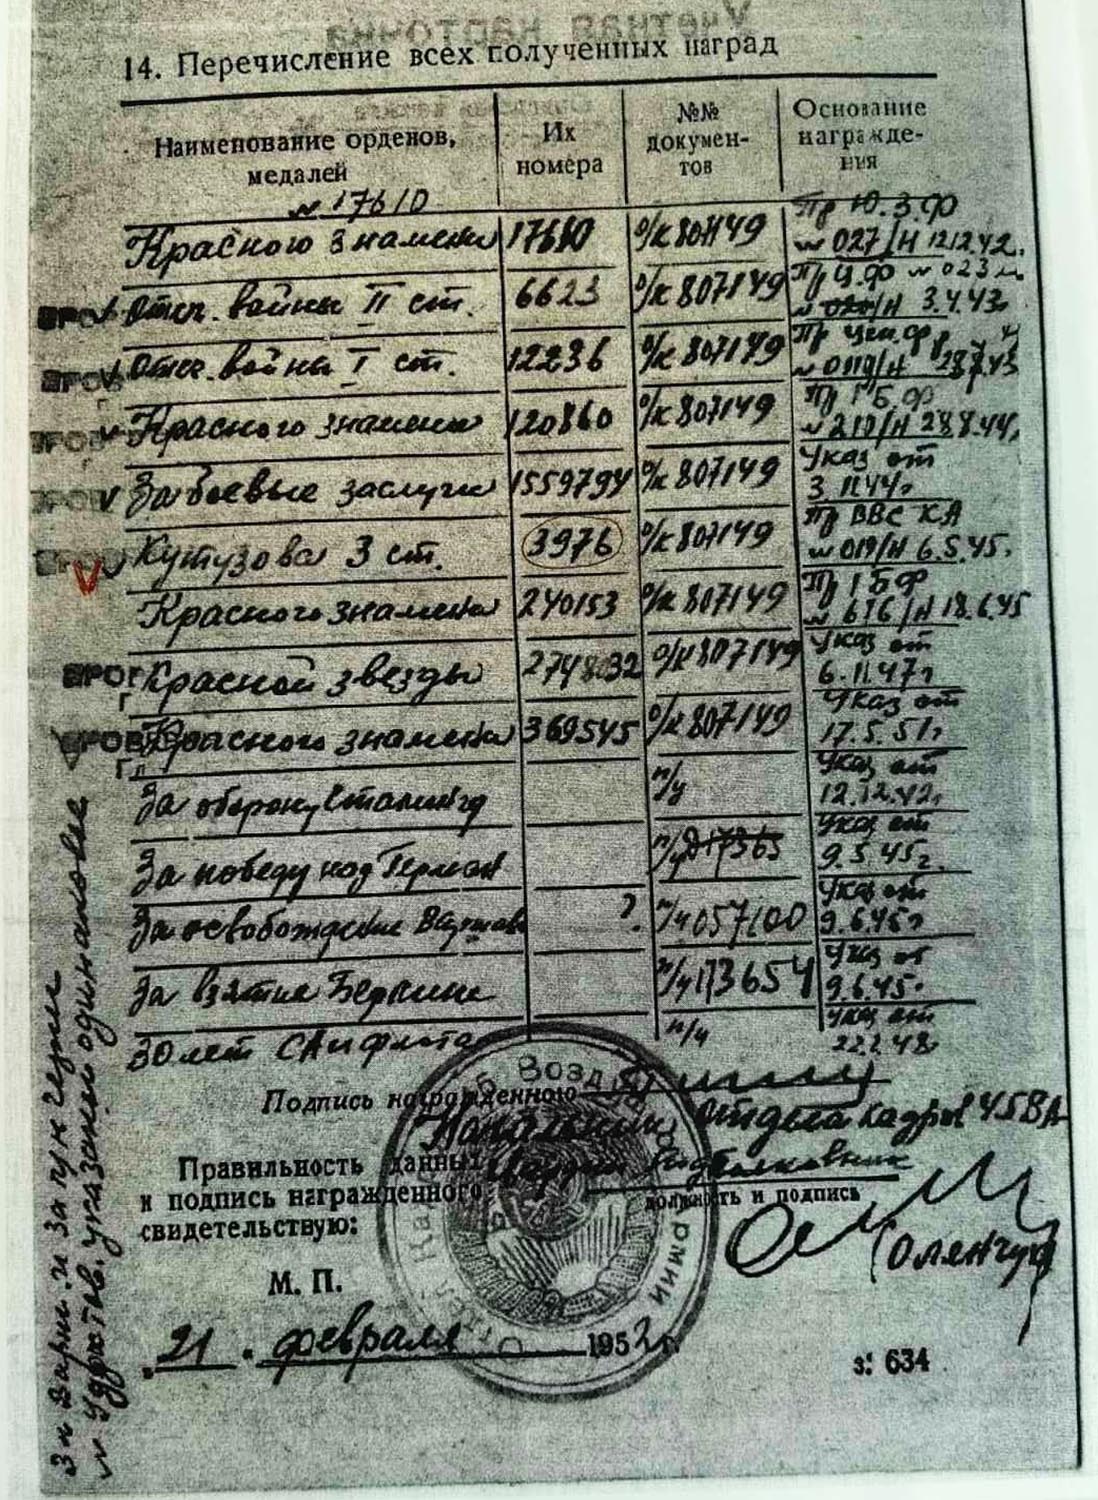 Учетная карточка
14. Перечисление всех полученных наград
Наименование орденов, медалей
Их номера
№№ документов
Основание награждения
№ 17610
Красного знамени 17610 о/к 807149 Пр Ю.З.Ф № 027/Н 12.12.42.
Отеч. войны II ст. 6623 о/к 807149 Пр Ц.Ф № 023 /Н 3.4.43
Отеч. войны I ст. 12236 о/к 807149 Пр Цен.Ф № 0119/Н 28.7.43
Красного знамени 120860 о/к 807149 Пр 1 Б.Ф № 210/Н 28.8.44
За боевые заслуги 1559794 о/к 807149 Указ от 3.11.44г
Кутузова 3 ст. 3976 о/к 807149 Пр ВВС КА № 019/Н 6.5.45.
Красного знамени 240153 о/к 807149 Пр 1 Б Ф № 616/Н 18.6.45
Красной звезды 2748032 о/к 807149 Указ от 6.11.47г
Красного знамени 369545 о/к 807149 Указ от 17.5.51г
За оборону Сталингр п/у Указ от 12.12.42г
За победу над Герман п/у Д17365 Указ от 9.5.45г.
За освобождение Варшав ? п/у 057100 Указ от 9.6.45г
За взятие Берлина п/у 173654 Указ от 9.6.45.
30 лет СА и флота п/у Указ от 22.2.48
Подпись награжденного
Начальник отдела кадров 45 ВА
Правильность данных Гвардии подполковник
и подпись награжденного должность и подпись
свидетельствую:
(Оленчук)
М. П.
„21“ февраля 1952 г.
з: 634
указаны одинаковые